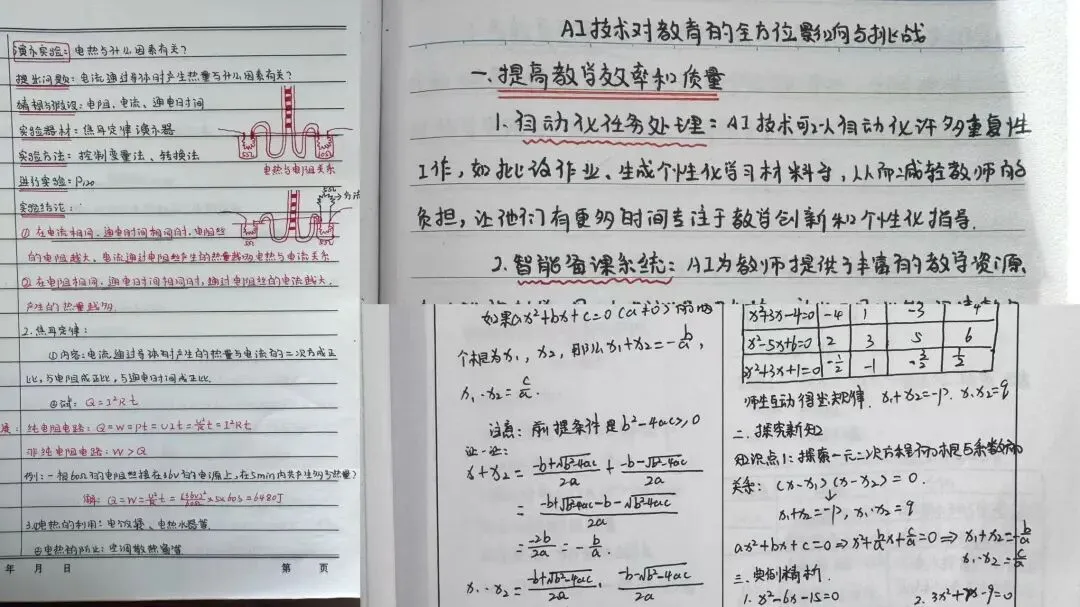 演示实验：电热与什么因素有关？
提出问题：电流通过导体时产生热量与什么因素有关？
猜想与假设：电阻、电流、通电时间
实验器材：焦耳定律演示器
实验方法：控制变量法、转换法
电热与电阻关系
进行实验：P120
实验结论：
①在电流相同、通电时间相同时，电阻丝
的电阻越大，电流通过电阻丝产生的热量越多
电热与电流关系
②在电阻相同、通电时间相同时，通过电阻丝的电流越大，
产生的热量越多.
2.焦耳定律：
①内容：电流通过导体时产生的热量与电流的二次方成正
比，与电阻成正比，与通电时间成正比.
Q=I²Rt
纯电阻电路：Q=W=Pt=UIt=U²/R t=I²Rt
非纯电阻电路：W>Q
例：一根60Ω的电阻丝接在36V的电源上，在5min内共产生多少热量？
解：Q=W=U²/R t=(36V)²/60Ω×5×60s=6480J
电热的利用：电饭煲、电热水器等
电热的防止：空调散热窗等
年 月 日 第 页
AI技术对教育的全方位影响与挑战
一、提高教学效率和质量
1.自动化任务处理：AI技术可以自动化许多重复性
工作，如批改作业、生成个性化学习材料等，从而减轻教师的
负担，让他们有更多时间专注于教学创新和个性化指导.
2.智能备课系统：AI为教师提供了丰富的教学资源
如果ax²+bx+c=0(a≠0)的两
个根为x₁，x₂，那么x₁+x₂=-b/a，
x₁·x₂=c/a.
注意：前提条件是b²-4ac≥0
证一证：
x₁+x₂=(-b+√(b²-4ac))/2a+(-b-√(b²-4ac))/2a
=(-b+√(b²-4ac)-b-√(b²-4ac))/2a
=-2b/2a=-b/a.
x₁·x₂=(-b+√(b²-4ac))/2a·(-b-√(b²-4ac))/2a
x²+3x-4=0 -4 1 -3 -4
x²-5x+6=0 2 3 5 6
2x²+3x+1=0 -1/2 -1 -3/2 1/2
师生互动得出规律.x₁+x₂=-p.x₁x₂=q
二、探究新知
知识点1：探索一元二次方程的根与系数的
关系：(x-x₁)(x-x₂)=0.
x₁+x₂=-p，x₁·x₂=q
ax²+bx+c=0⇒x²+b/a x+c/a=0⇒x₁+x₂=-b/a
x₁·x₂=c/a
三、典例精析.
1.x²-6x-15=0